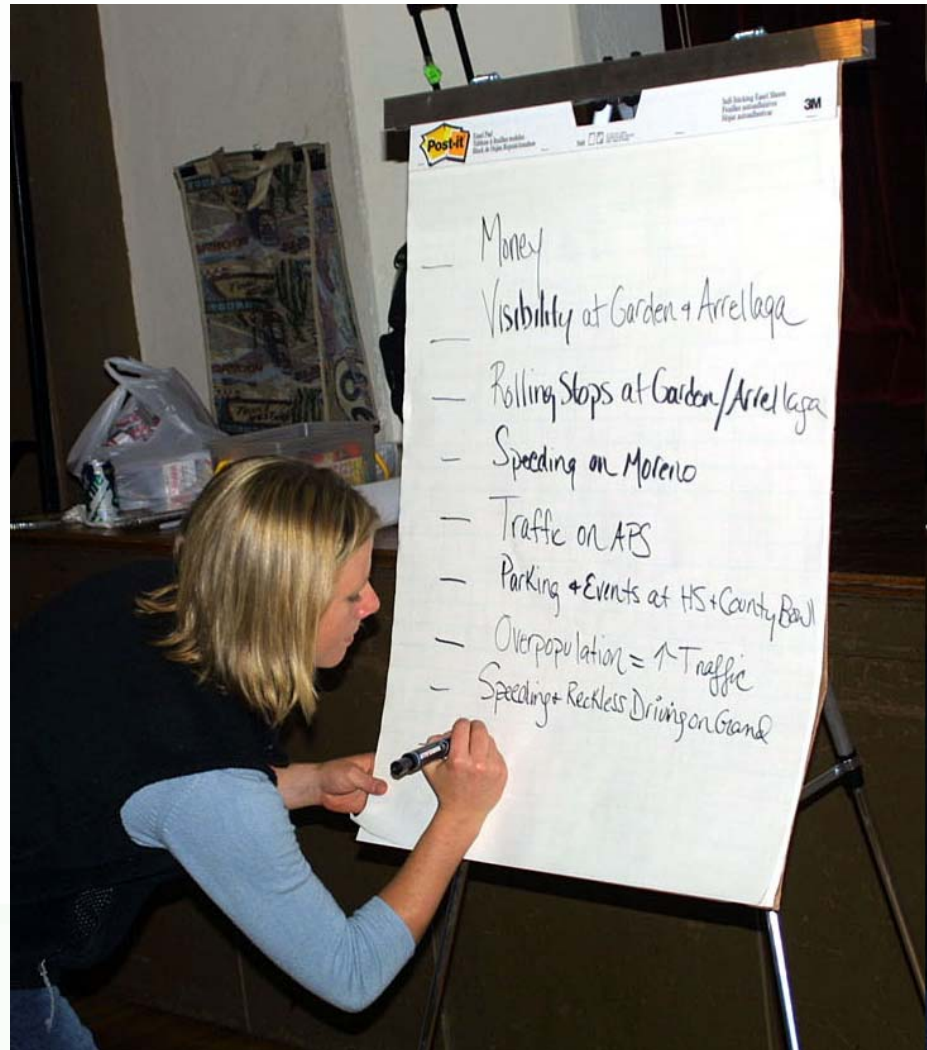 Post-it
Easel Pad
Self-Sticking Easel Sheets
3M
— Money
— Visibility at Garden + Arrellaga
— Rolling Stops at Garden/Arrellaga
— Speeding on Moreno
— Traffic on APS
— Parking + Events at HS + County Bowl
— Overpopulation = ↑ Traffic
— Speeding + Reckless Driving on Grand